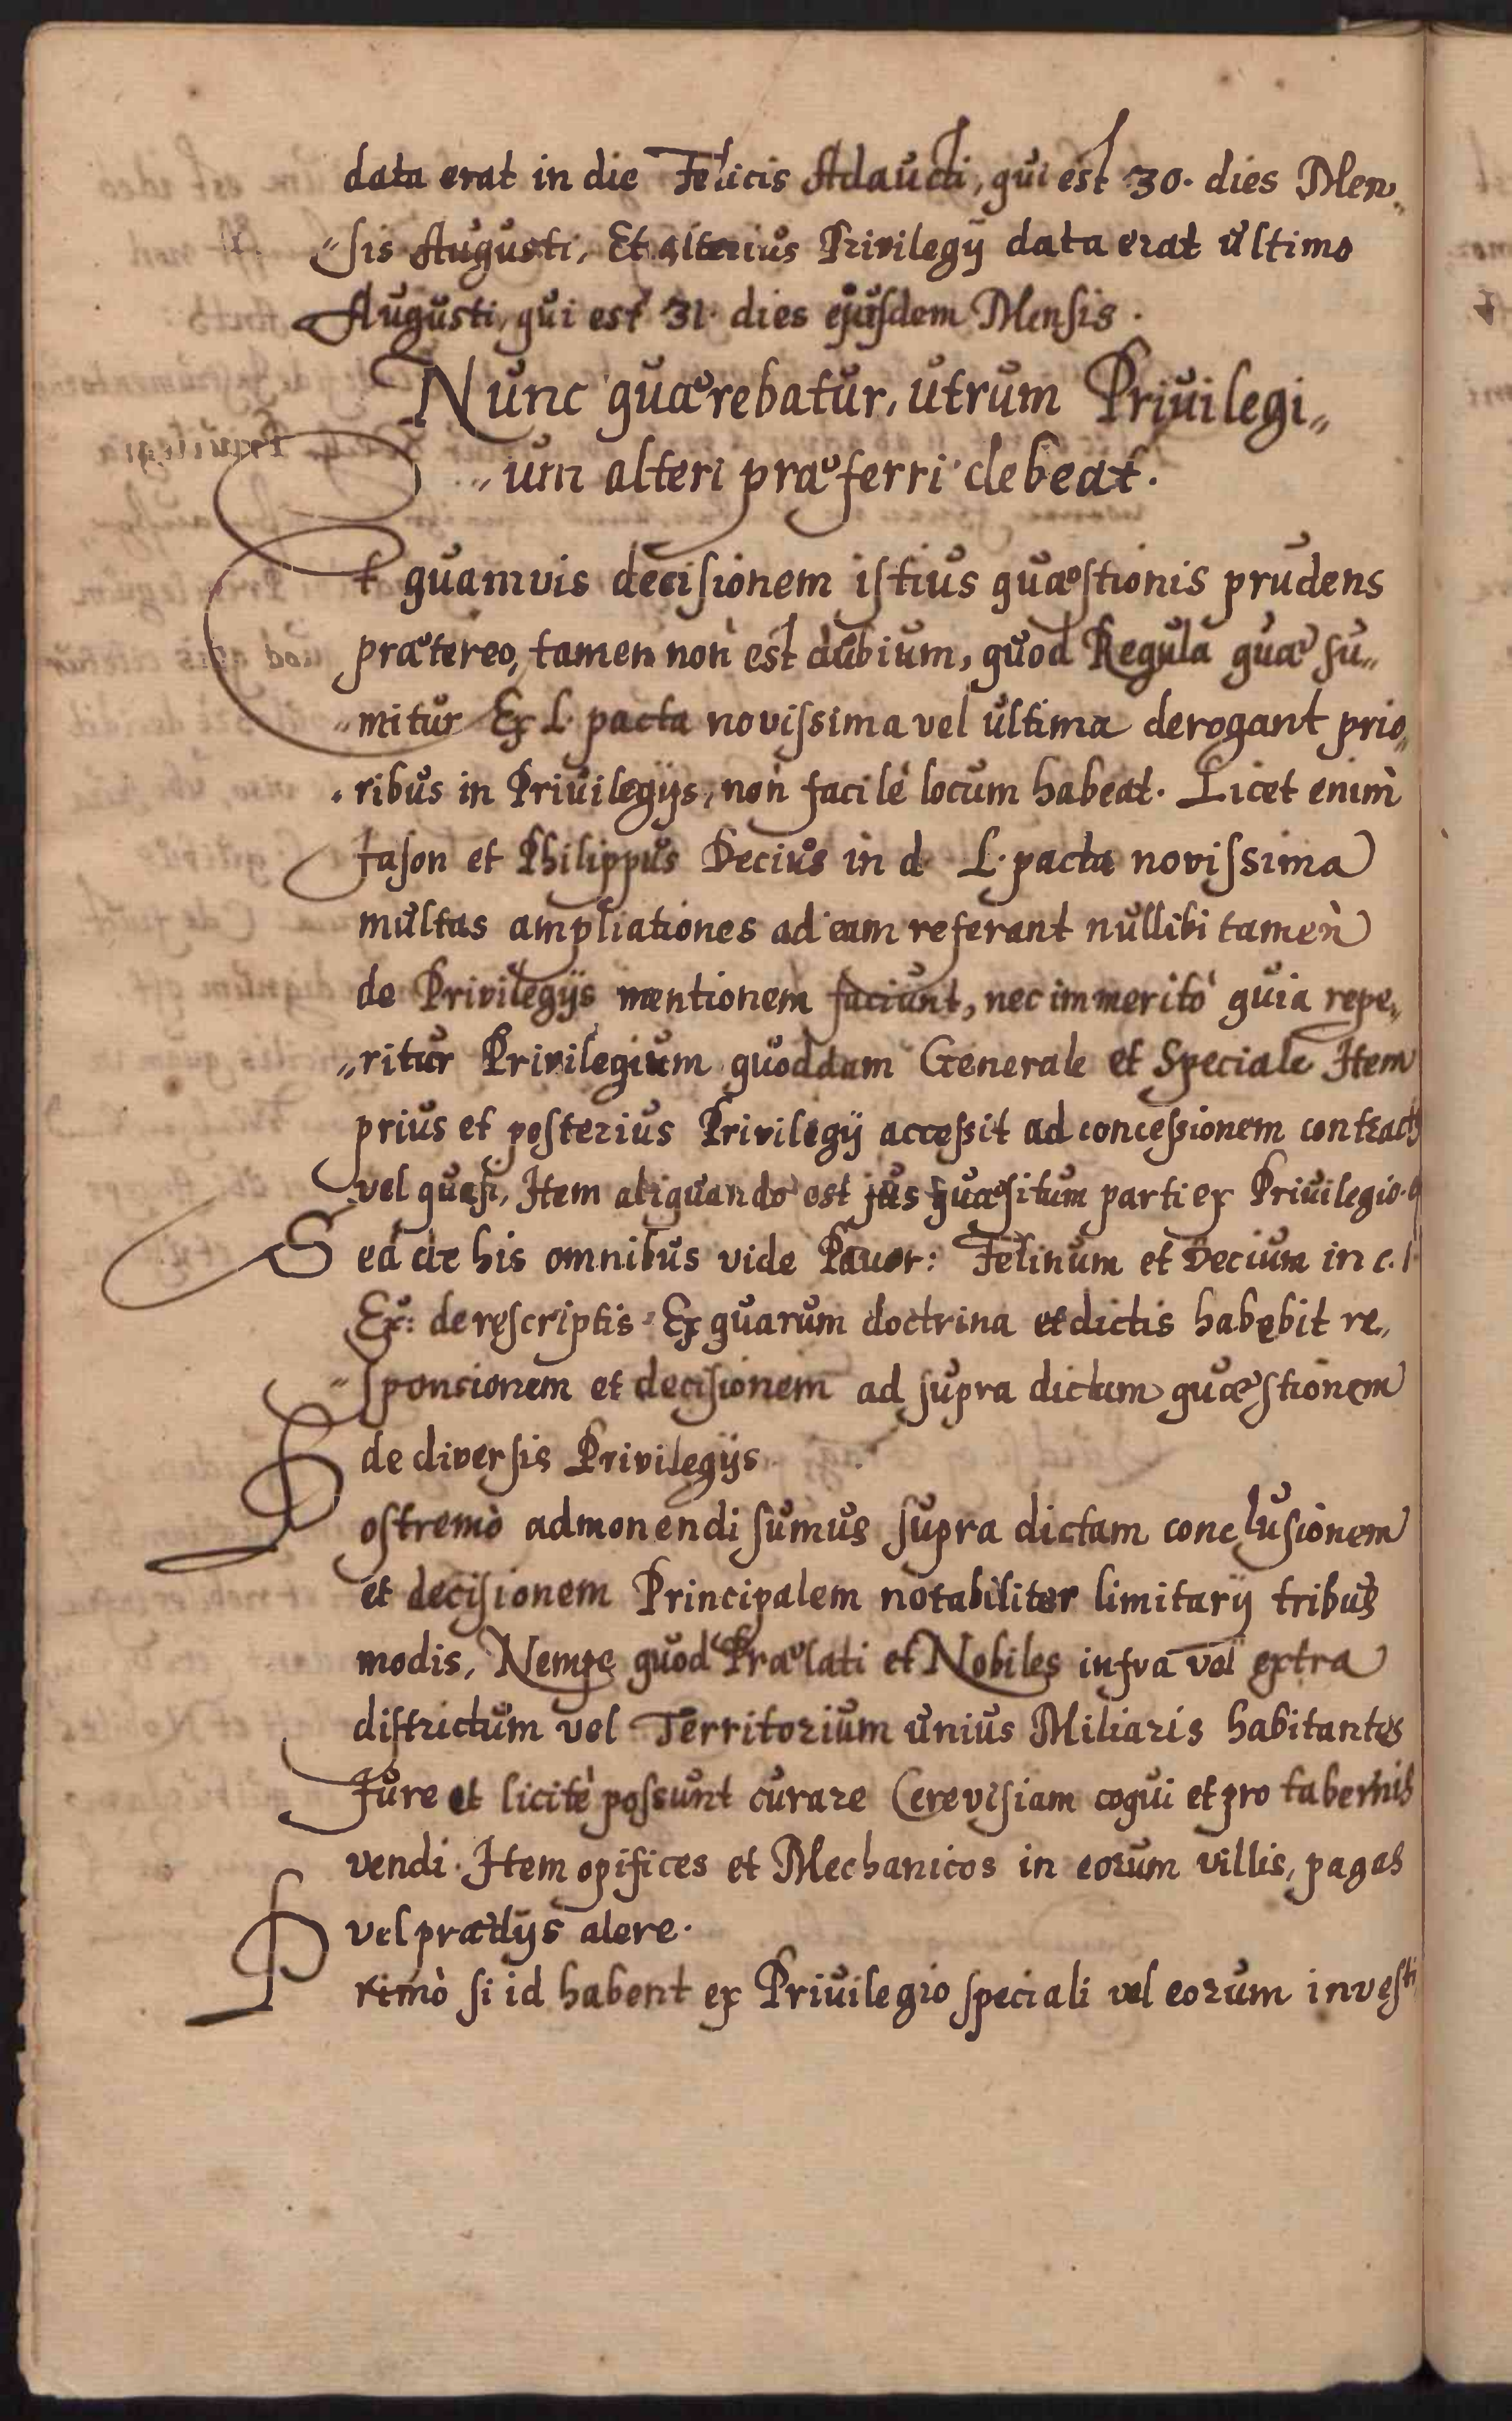 data erat in die Felicis Adaucti, qui est 30. dies Men„
„sis Augusti, Et alterius Privilegij data erat ultimo
Augusti, qui est 31. dies ejusdem Mensis.
Nunc quærebatur, utrum Privilegi„
„um alteri præferri debeat.
Et quamvis decisionem istius quæstionis prudens
prætereo, tamen non est dubium, quod Regula quæ su„
„mitur Ex L. pacta novissima vel ultima derogant prio„
„ribus in Privilegijs, non facilè locum habeat. Licet enim
Jason et Philippus Decius in d. L. pacta novissima
multas ampliationes ad eam referant nullibi tamen
de Privilegijs mentionem faciunt, nec immeritò quia repe„
„ritur Privilegium quoddam Generale et Speciale Item
prius et posterius Privilegij accessit ad concessionem contract
vel quasi, Item aliquando est jus quæsitum parti ex Privilegio.
Sed de his omnibus vide Felinum et Decium in c. 1.
Ex: de rescriptis. Ex quarum doctrina et dictis habebit re„
„sponsionem et decisionem ad supra dictam quæstionem
de diversis Privilegijs.
Postremò admonendi sumus supra dictam conclusionem
et decisionem Principalem notabiliter limitarij tribus
modis, Nempe quod Prælati et Nobiles infra vel extra
districtum vel Territorium unius Miliaris habitantes
Jure et licitè possunt curare Cerevisiam coqui et pro tabernis
vendi. Item opifices et Mechanicos in eorum villis, pagis
vel prædijs alere.
Primò si id habent ex Privilegio speciali vel eorum investi